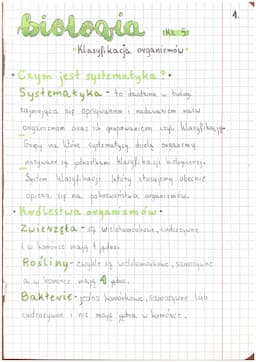 1.
biologia (kl. 5)
- Klasyfikacja organizmów -
• Czym jest systematyka? •
Systematyka - to dziedzina w biologi
zajmująca się opisywaniem i nadawaniem nazw
organizmom oraz ich grupowaniem czyli klasyfikacją.
Grupy na które systematycy dzielą organizmy
nazywane są jednostkami klasyfikacji biologicznej.
System klasyfikacji który stosujemy obecnie
opiera się na pokrewieństwie organizmów.
• Królestwa organizmów •
Zwierzęta - są wielokomórkowe, cudzożywne
i w komórce mają 1 jądro.
Rośliny - zwykle są wielokomórkowe, samożywne
a w komórce mają 1 jądro.
Bakterie - jedno komórkowe, samożywne lub
cudzożywne i nie mają jądra w komórce.